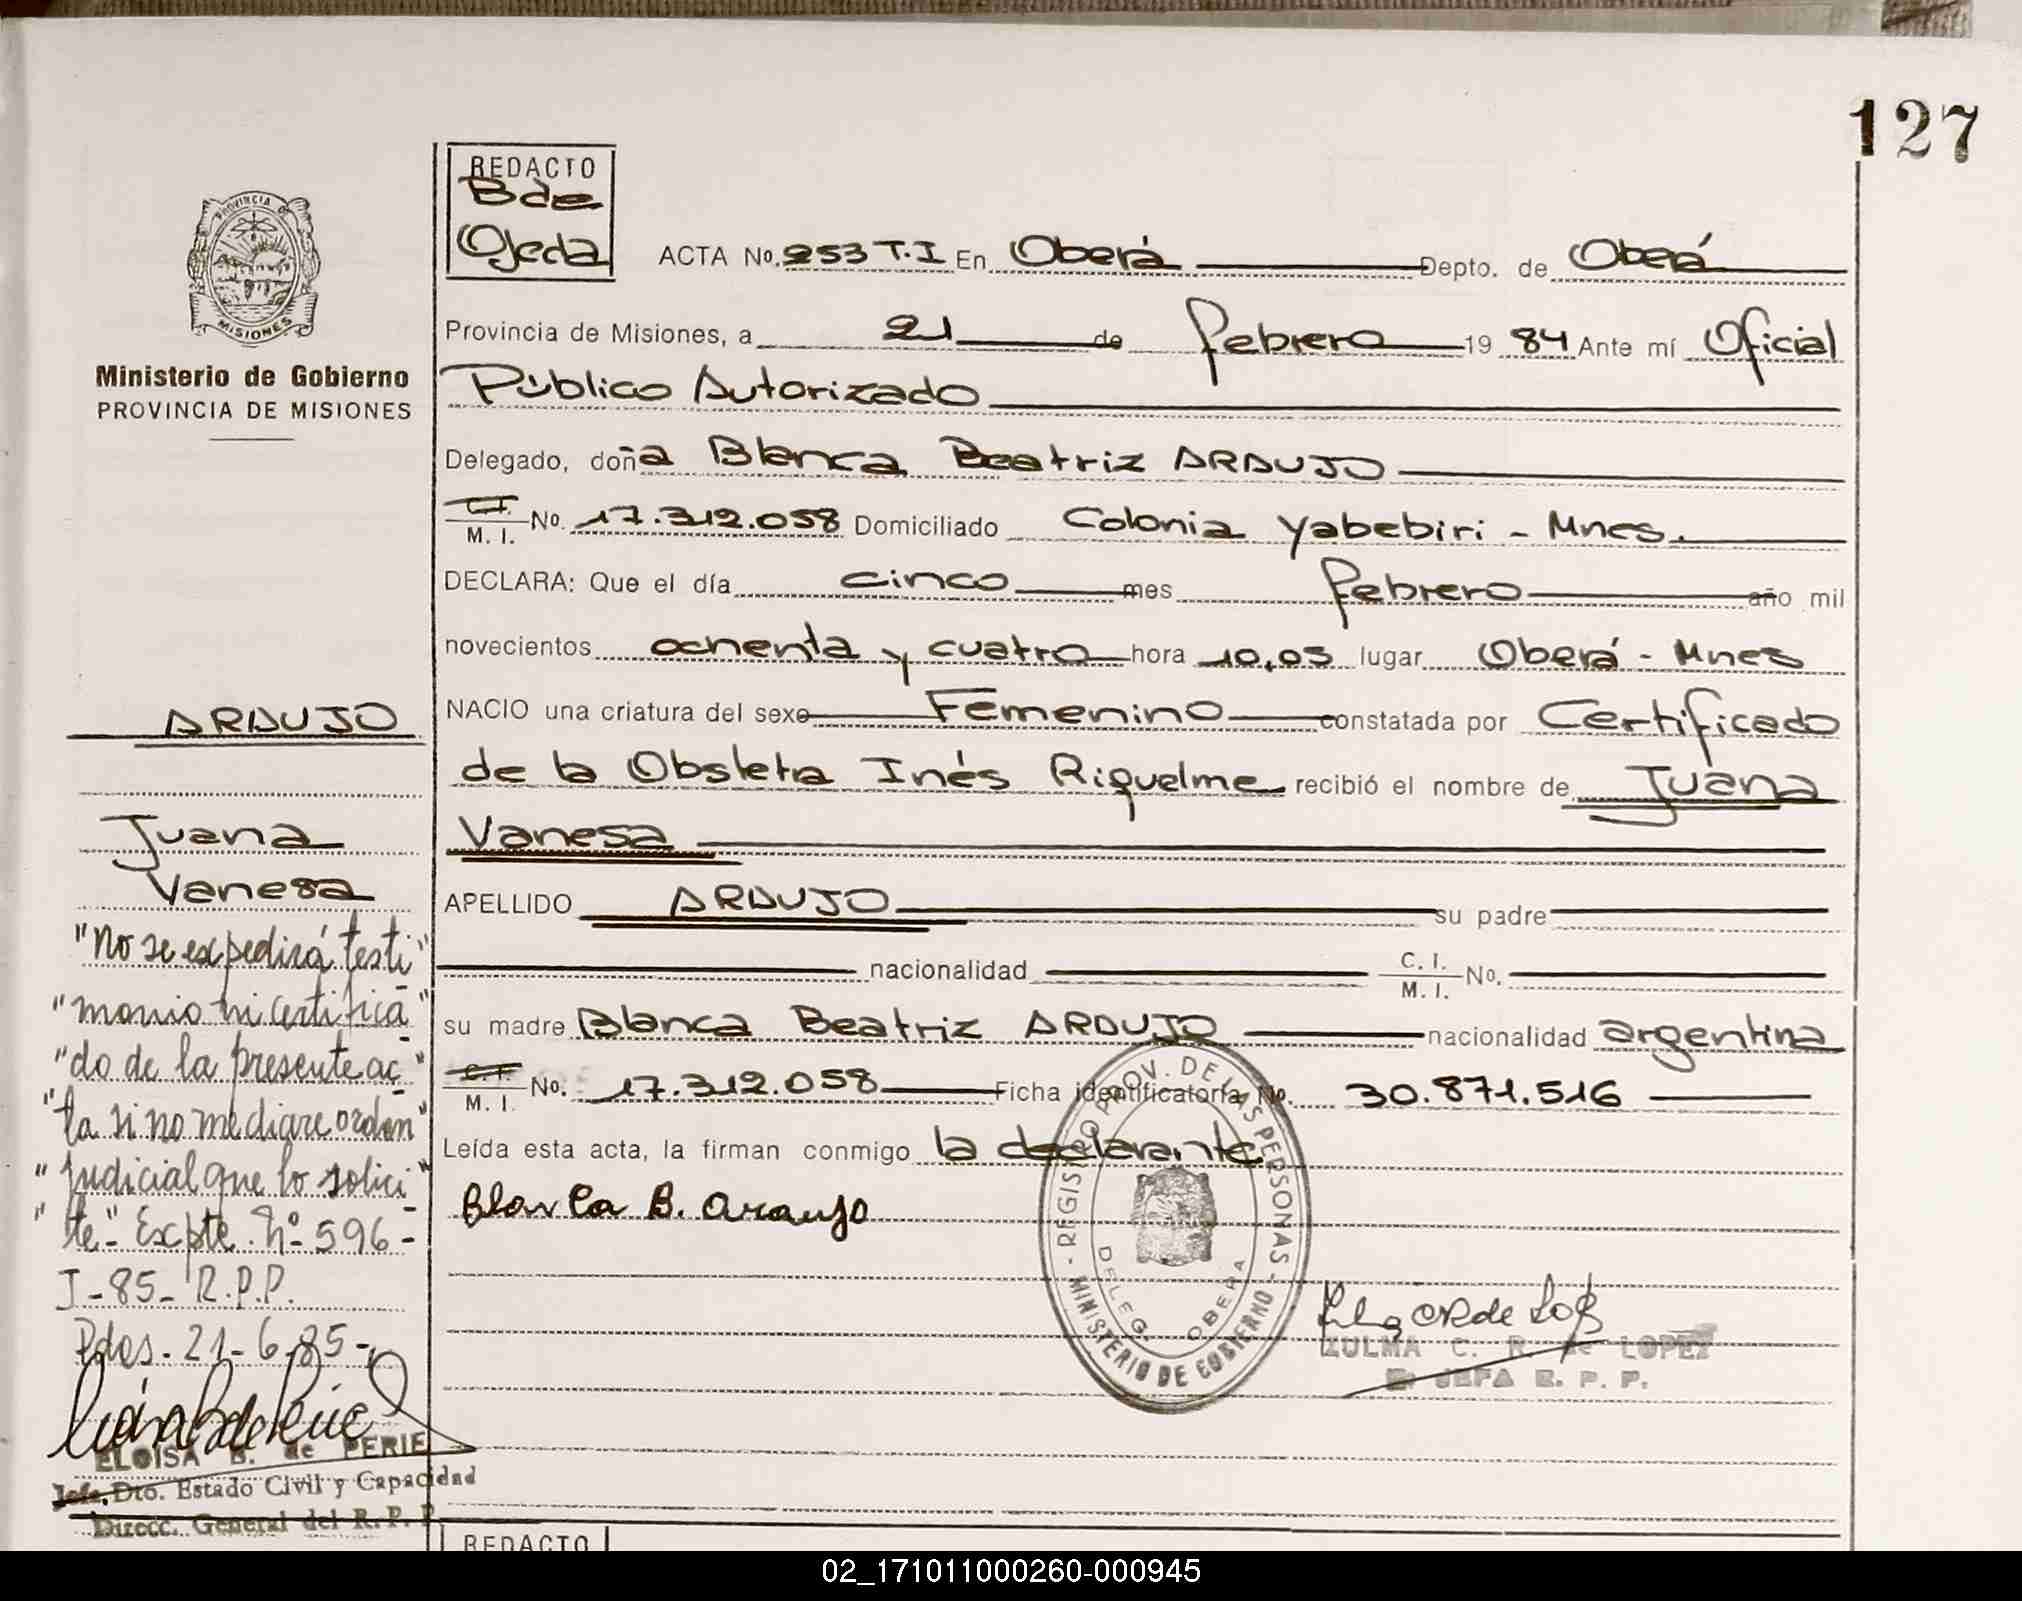 127
REDACTO
Bde
Ojeda
ACTA No. 253 T.I En Oberá Depto. de Oberá
PROVINCIA DE
MISIONES
Ministerio de Gobierno
PROVINCIA DE MISIONES
Provincia de Misiones, a 21 de febrero 19 84 Ante mí Oficial
Público Autorizado
Delegado, doña Blanca Beatriz ARAUJO
C.I. M. I. No. 17.312.058 Domiciliado Colonia Yabebiri - Mnes.
DECLARA: Que el día cinco mes febrero año mil
novecientos ochenta y cuatro hora 10,05 lugar Oberá - Mnes
NACIO una criatura del sexo Femenino constatada por Certificado
de la Obsletra Inés Riquelme recibió el nombre de Juana
Vanesa
APELLIDO ARAUJO su padre
nacionalidad C. I. M. I. No.
su madre Blanca Beatriz ARAUJO nacionalidad argentina
C. I. M. I. No. 17.312.058 Ficha identificatoria No. 30.871.516
Leída esta acta, la firman conmigo la declarante
Blanca B. Araujo
REGISTRO PROV. DE LAS PERSONAS
MINISTERIO DE GOBIERNO
DELEG. OBERA
ZULMA C. R. de LOPEZ
JEFA R. P. P.
ARAUJO
Juana
Vanesa
"No se expedirá testi"
"monio ni certifica"
"do de la presente ac"
"ta si no mediare orden"
"judicial que lo solici"
"te" Expte. Nº 596-
J-85- R.P.P.
Pdas. 21-6-85-
ELOISA B. de PERIE
Jefa. Dto. Estado Civil y Capacidad
Direcc. General del R. P. P.
REDACTO
02_171011000260-000945